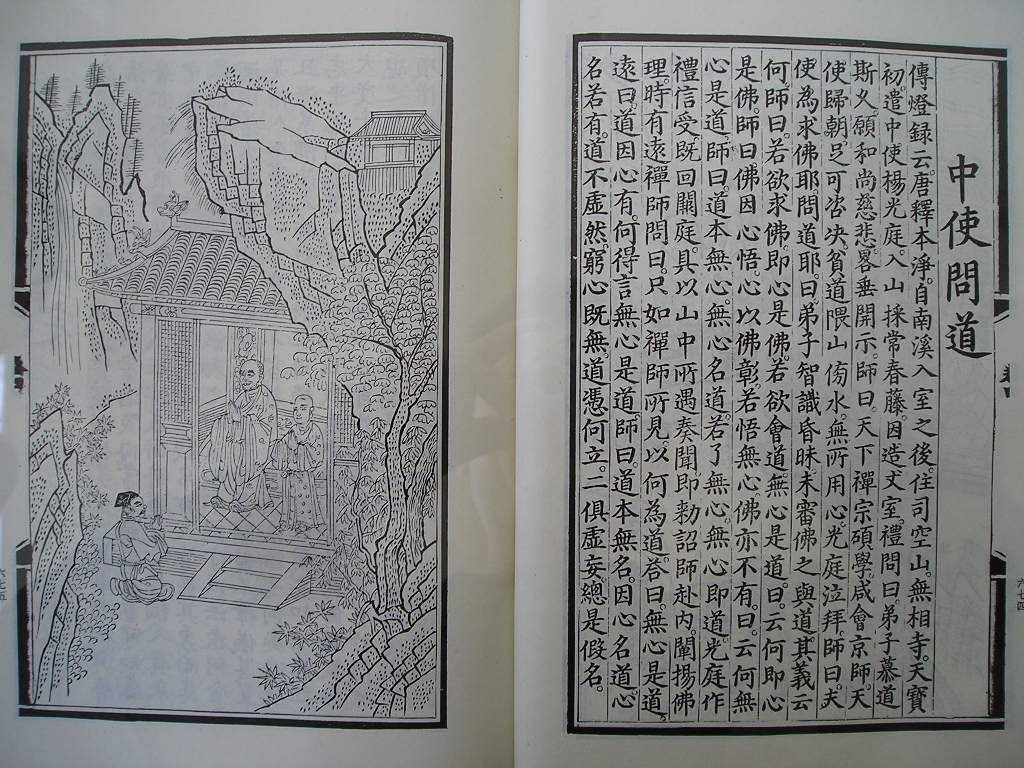 中使問道
傳燈録云。唐釋本淨。自南溪入室之後。住司空山。無相寺。天寶
初。遣中使楊光庭。入山採常春藤。因造丈室。禮問曰。弟子慕道
斯久。願和尚慈悲。畧垂開示。師曰。天下禪宗碩學。咸會京師。天
使歸朝。足可咨决。貧道隈山傍水。無所用心。光庭泣拜。師曰。天
使為求佛耶。問道耶。曰。弟子智識昏昧。未審佛之與道其義云
何。師曰。若欲求佛。即心是佛。若欲會道。無心是道。曰。云何即心
是佛。師曰。佛因心悟。心以佛彰。若悟無心。佛亦不有。曰。云何無
心是道。師曰。道本無心。無心名道。若了無心。無心即道。光庭作
禮信受。既回闕庭。具以山中所遇奏聞。即勅詔師赴内。闡揚佛
理。時有遠禪師問曰。只如禪師所見。以何為道。荅曰。無心是道。
遠曰。道因心有。何得言無心是道。師曰。道本無名。因心名道。心
名若有。道不虛然。窮心既無。道憑何立。二俱虛妄。總是假名。
六七四
六七五